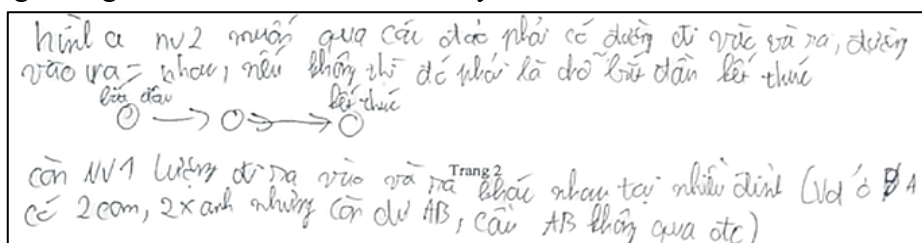 hình a nv2 muốn qua các đảo phải có đường đi vào và ra, đường
vào ra = nhau, nếu không thì đó phải là chỗ bắt đầu kết thúc
bắt đầu kết thúc
Trang 2
còn NV1 lượng đi ra vào và ra khác nhau tại nhiều đỉnh (Vd ở A
có 2 cam, 2 xanh nhưng còn dư AB, cầu AB không qua đc)